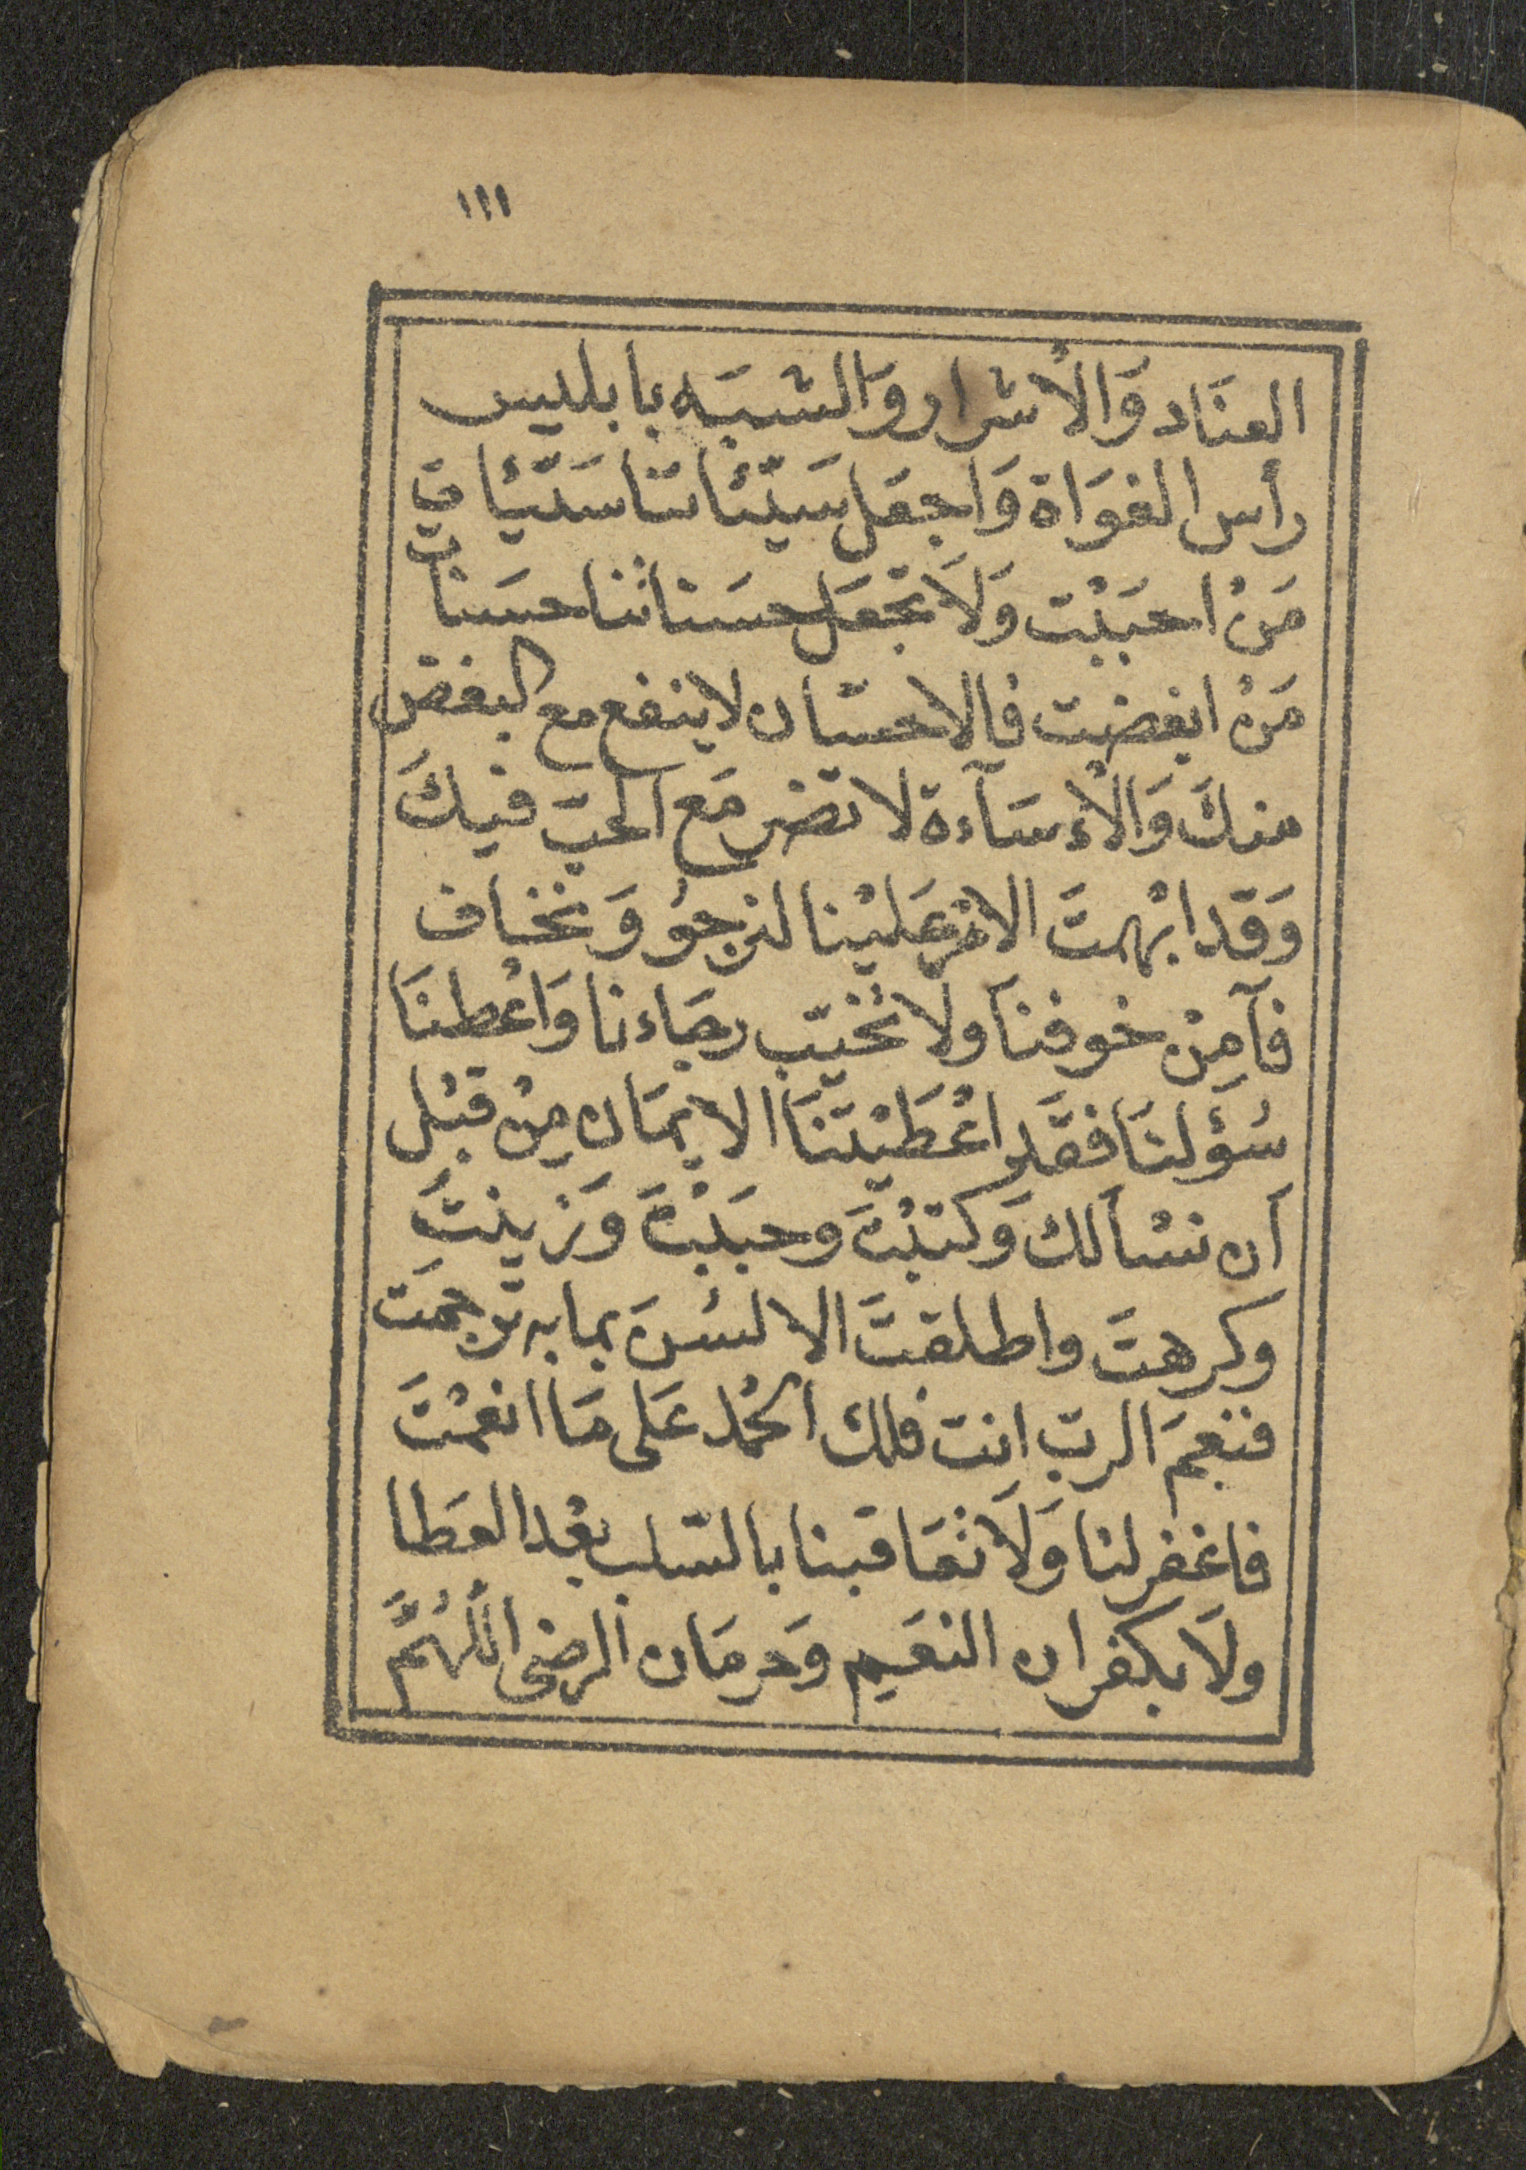 ١١١
العنَاد وَالأشرار وَالشبَه بابليس
رأس الغوَاة وَاجعَل سَيّئاتنا سَيّئات
مَنْ احبَبْت وَلَا تجعَل حسَناتنا حسَنات
مَنْ ابغضت فالاحسَان لا ينفع مع البغض
منكَ وَالْاءسَآءة لا تضر مَع الحبّ فيكَ
وَقد ابْهمتَ الامْر عَليْنا لنرجوُ وَنخاف
فآمِنْ خوفنَا ولا تخيّب رجَاءنا وَاعْطنَا
سُؤلنَا فقَد اعْطَيْتنَا الايمَان مِنْ قبْل
أن نسْألك وَكتبْتَ وحبَبْتَ وَزينتَ
وكرهتَ واطلقتَ الالسُنَ بما به ترجمَت
فنعِمَ الربّ انت فلك الحمْد عَلى مَا انعمْتَ
فاغفر لنا وَلَا تعَاقبنا بالسّلب بعْد العَطا
ولَا بكفران النعَيم وَحرمَان الرضى اللّهُمَّ